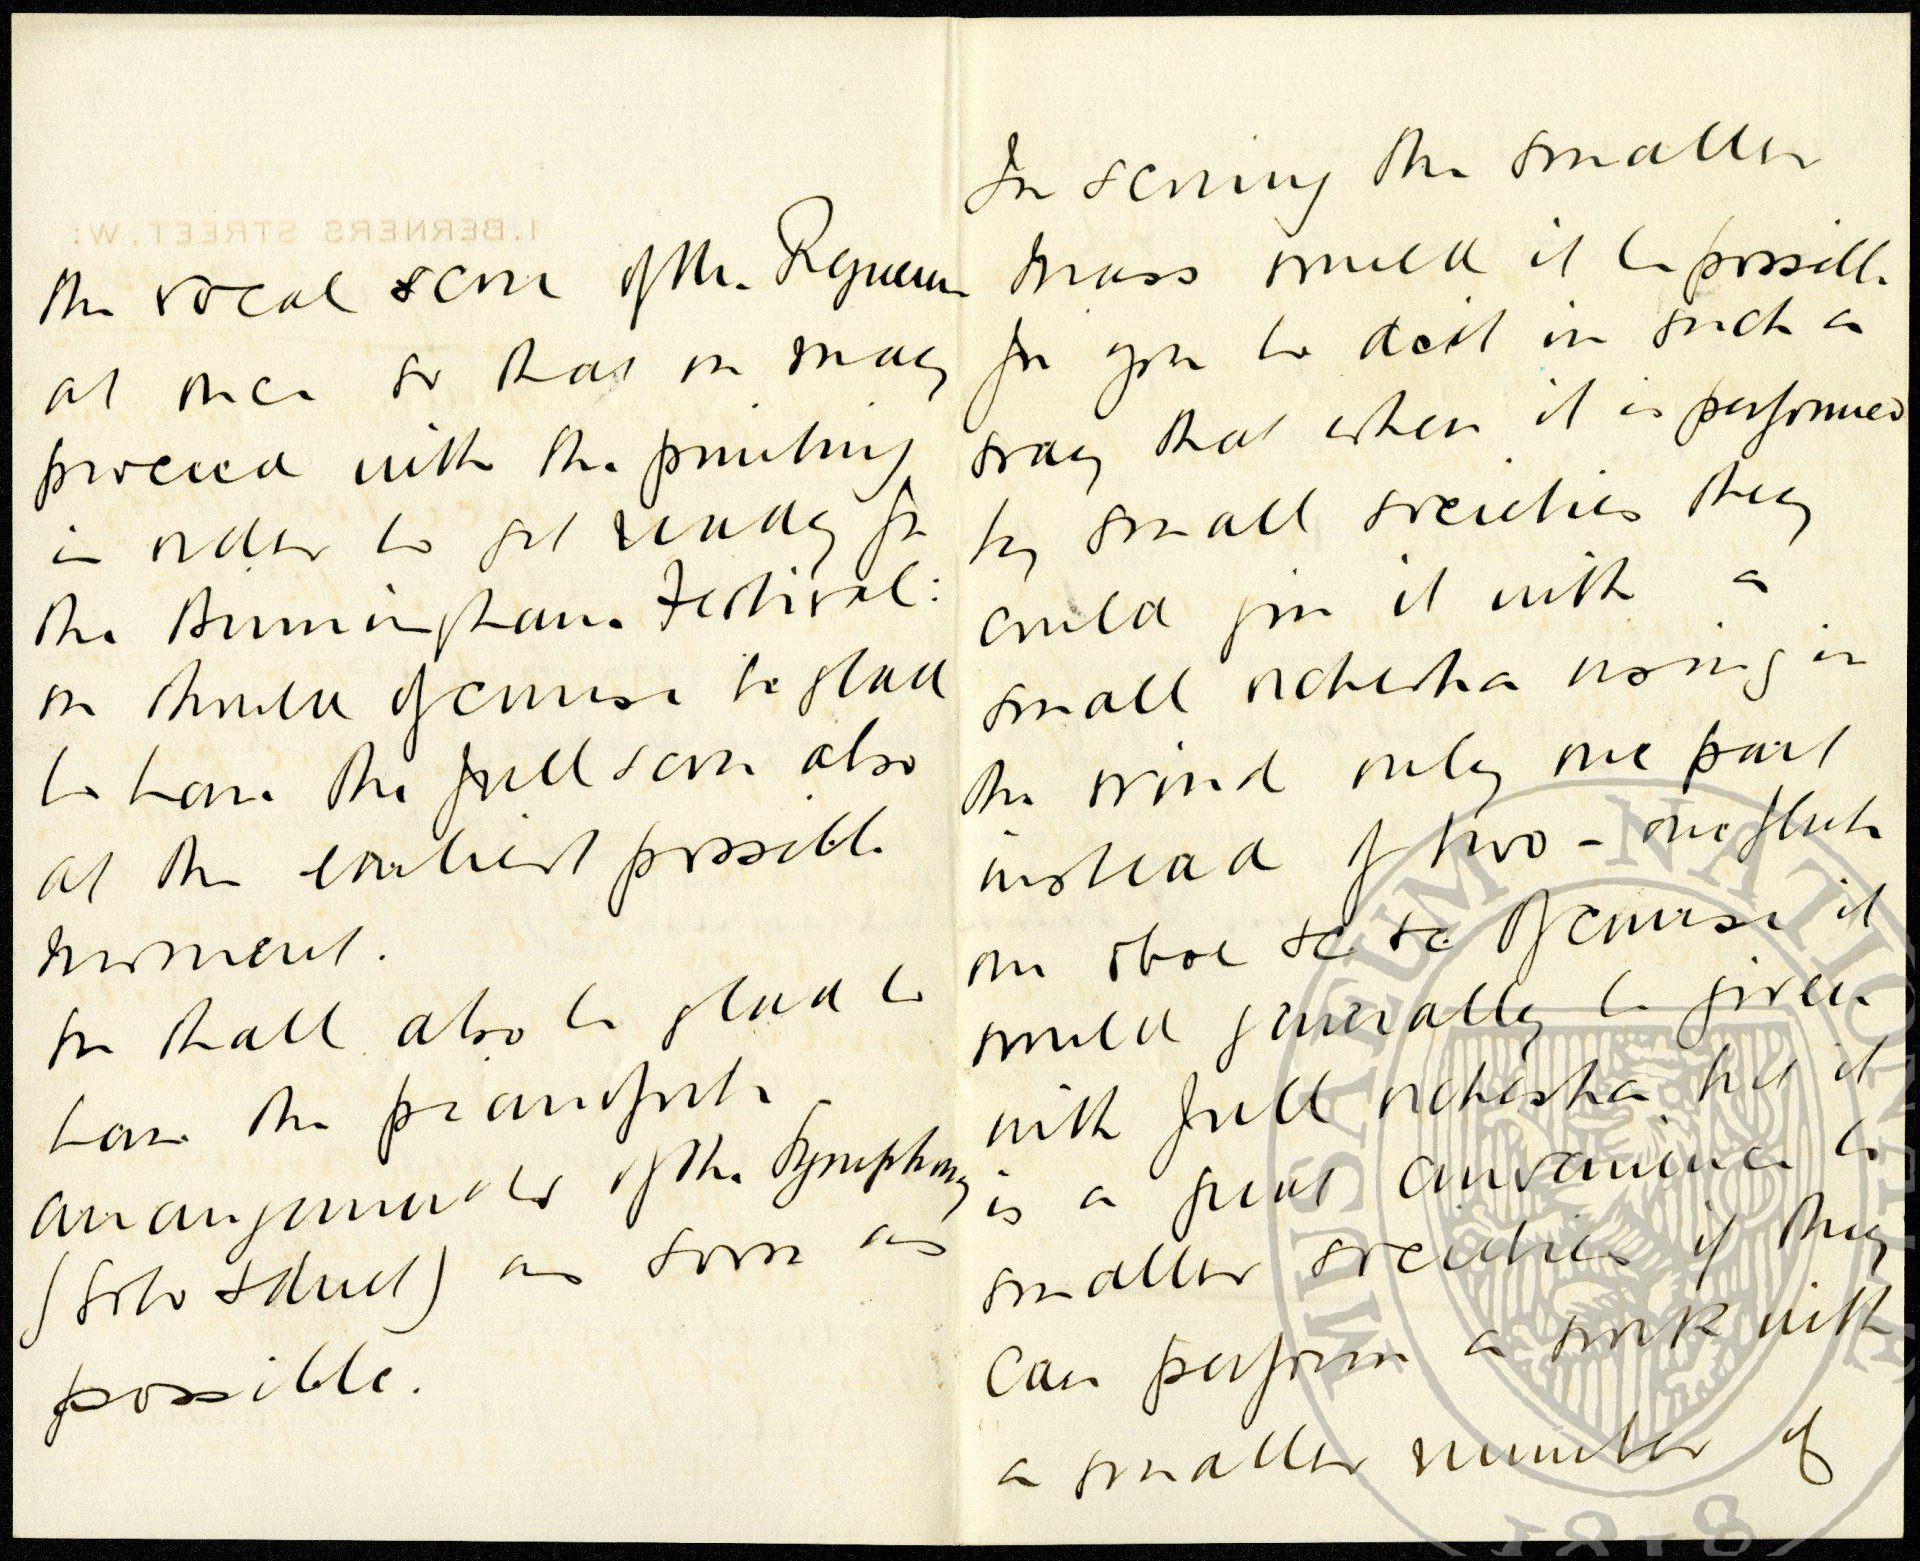 1. BERNERS STREET, W:
the vocal score of the Requiem
at once so that we may
proceed with the printing
in order to get ready for
the Birmingham Festival:
we should of course be glad
to have the full score also
at the earliest possible
moment.
We shall also be glad to
have the pianoforte
arrangements of the Symphony
(solo & duet) as soon as
possible.
In scoring the smaller
Mass would it be possible
for you to do it in such a
way that when it is performed
by small societies they
could give it with a
small orchestra using in
the wind only one part
instead of two - one flute
one oboe &c &c. Of course it
would generally be given
with full orchestra but it
is a great convenience to
smaller societies if they
can perform a work with
a smaller number of
MUSAEUM NATIONALE
1818